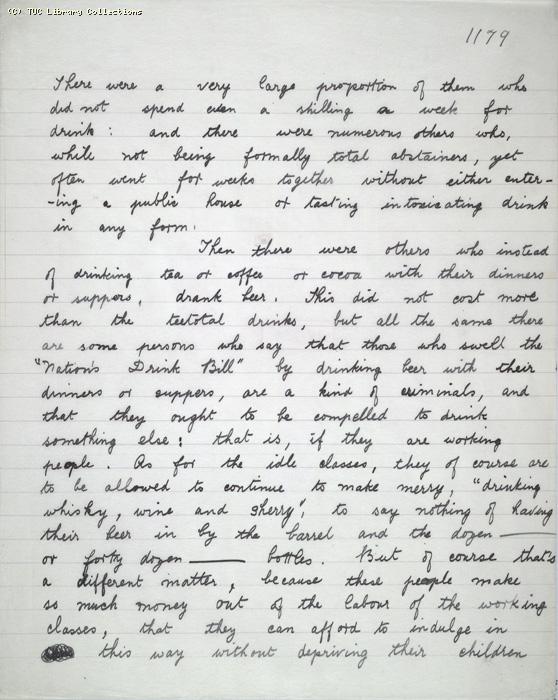 (C) TUC Library Collections
1179
There were a very large proportion of them who
did not spend even a shilling a week for
drink: and there were numerous others who,
while not being formally total abstainers, yet
often went for weeks together without either enter-
-ing a public house or tasting intoxicating drink
in any form.
Then there were others who instead
of drinking tea or coffee or cocoa with their dinners
or suppers, drank beer. This did not cost more
than the teetotal drinks, but all the same there
are some persons who say that those who swell the
"Nation's Drink Bill" by drinking beer with their
dinners or suppers, are a kind of criminals, and
that they ought to be compelled to drink
something else: that is, if they are working
people. As for the idle classes, they of course are
to be allowed to continue to make merry, "drinking
whisky, wine and sherry", to say nothing of having
their beer in by the barrel and the dozen —
or forty dozen — bottles. But of course that's
a different matter, because these people make
so much money out of the labour of the working
classes, that they can afford to indulge in
this way without depriving their children